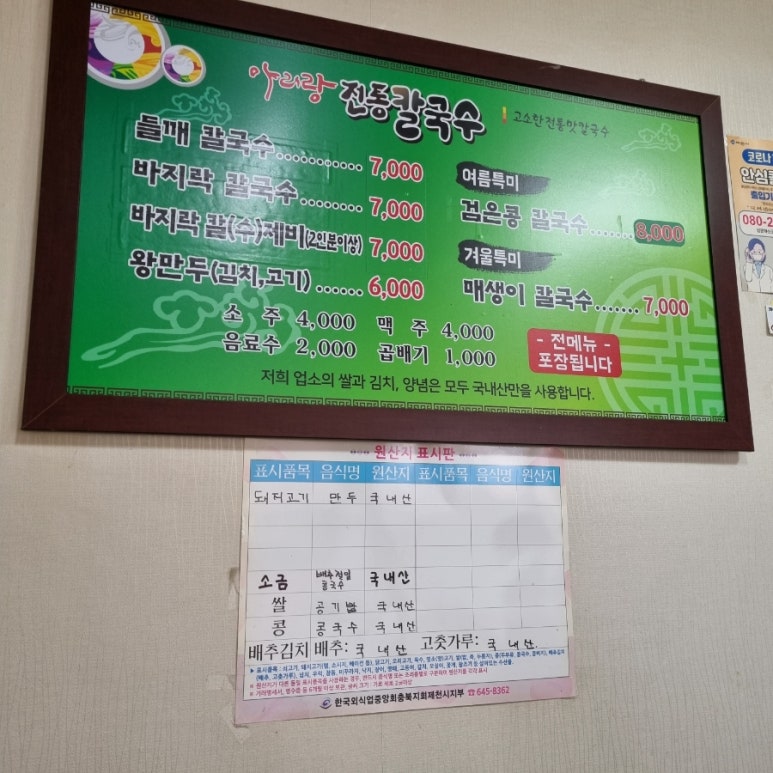 아리랑 전통칼국수 고소한전통맛칼국수
들깨 칼국수............ 7,000
바지락 칼국수......... 7,000
바지락 칼(수)제비(2인분이상) 7,000
왕만두(김치,고기) ...... 6,000
여름특미
검은콩 칼국수....... 8,000
겨울특미
매생이 칼국수...... 7,000
소 주 4,000 맥 주 4,000
음료수 2,000 곱배기 1,000
- 전메뉴 -
포장됩니다
저희 업소의 쌀과 김치, 양념은 모두 국내산만을 사용합니다.
코로나
안심콜
080-2
원산지 표시판
표시품목 음식명 원산지 표시품목 음식명 원산지
돼지고기 만두 국내산
소금 배추절임 콩국수 국내산
쌀 공기밥 국내산
콩 콩국수 국내산
배추김치 배추: 국내산 고춧가루: 국내산.
한국외식업중앙회충북지회제천시지부 ☎ 645-8362